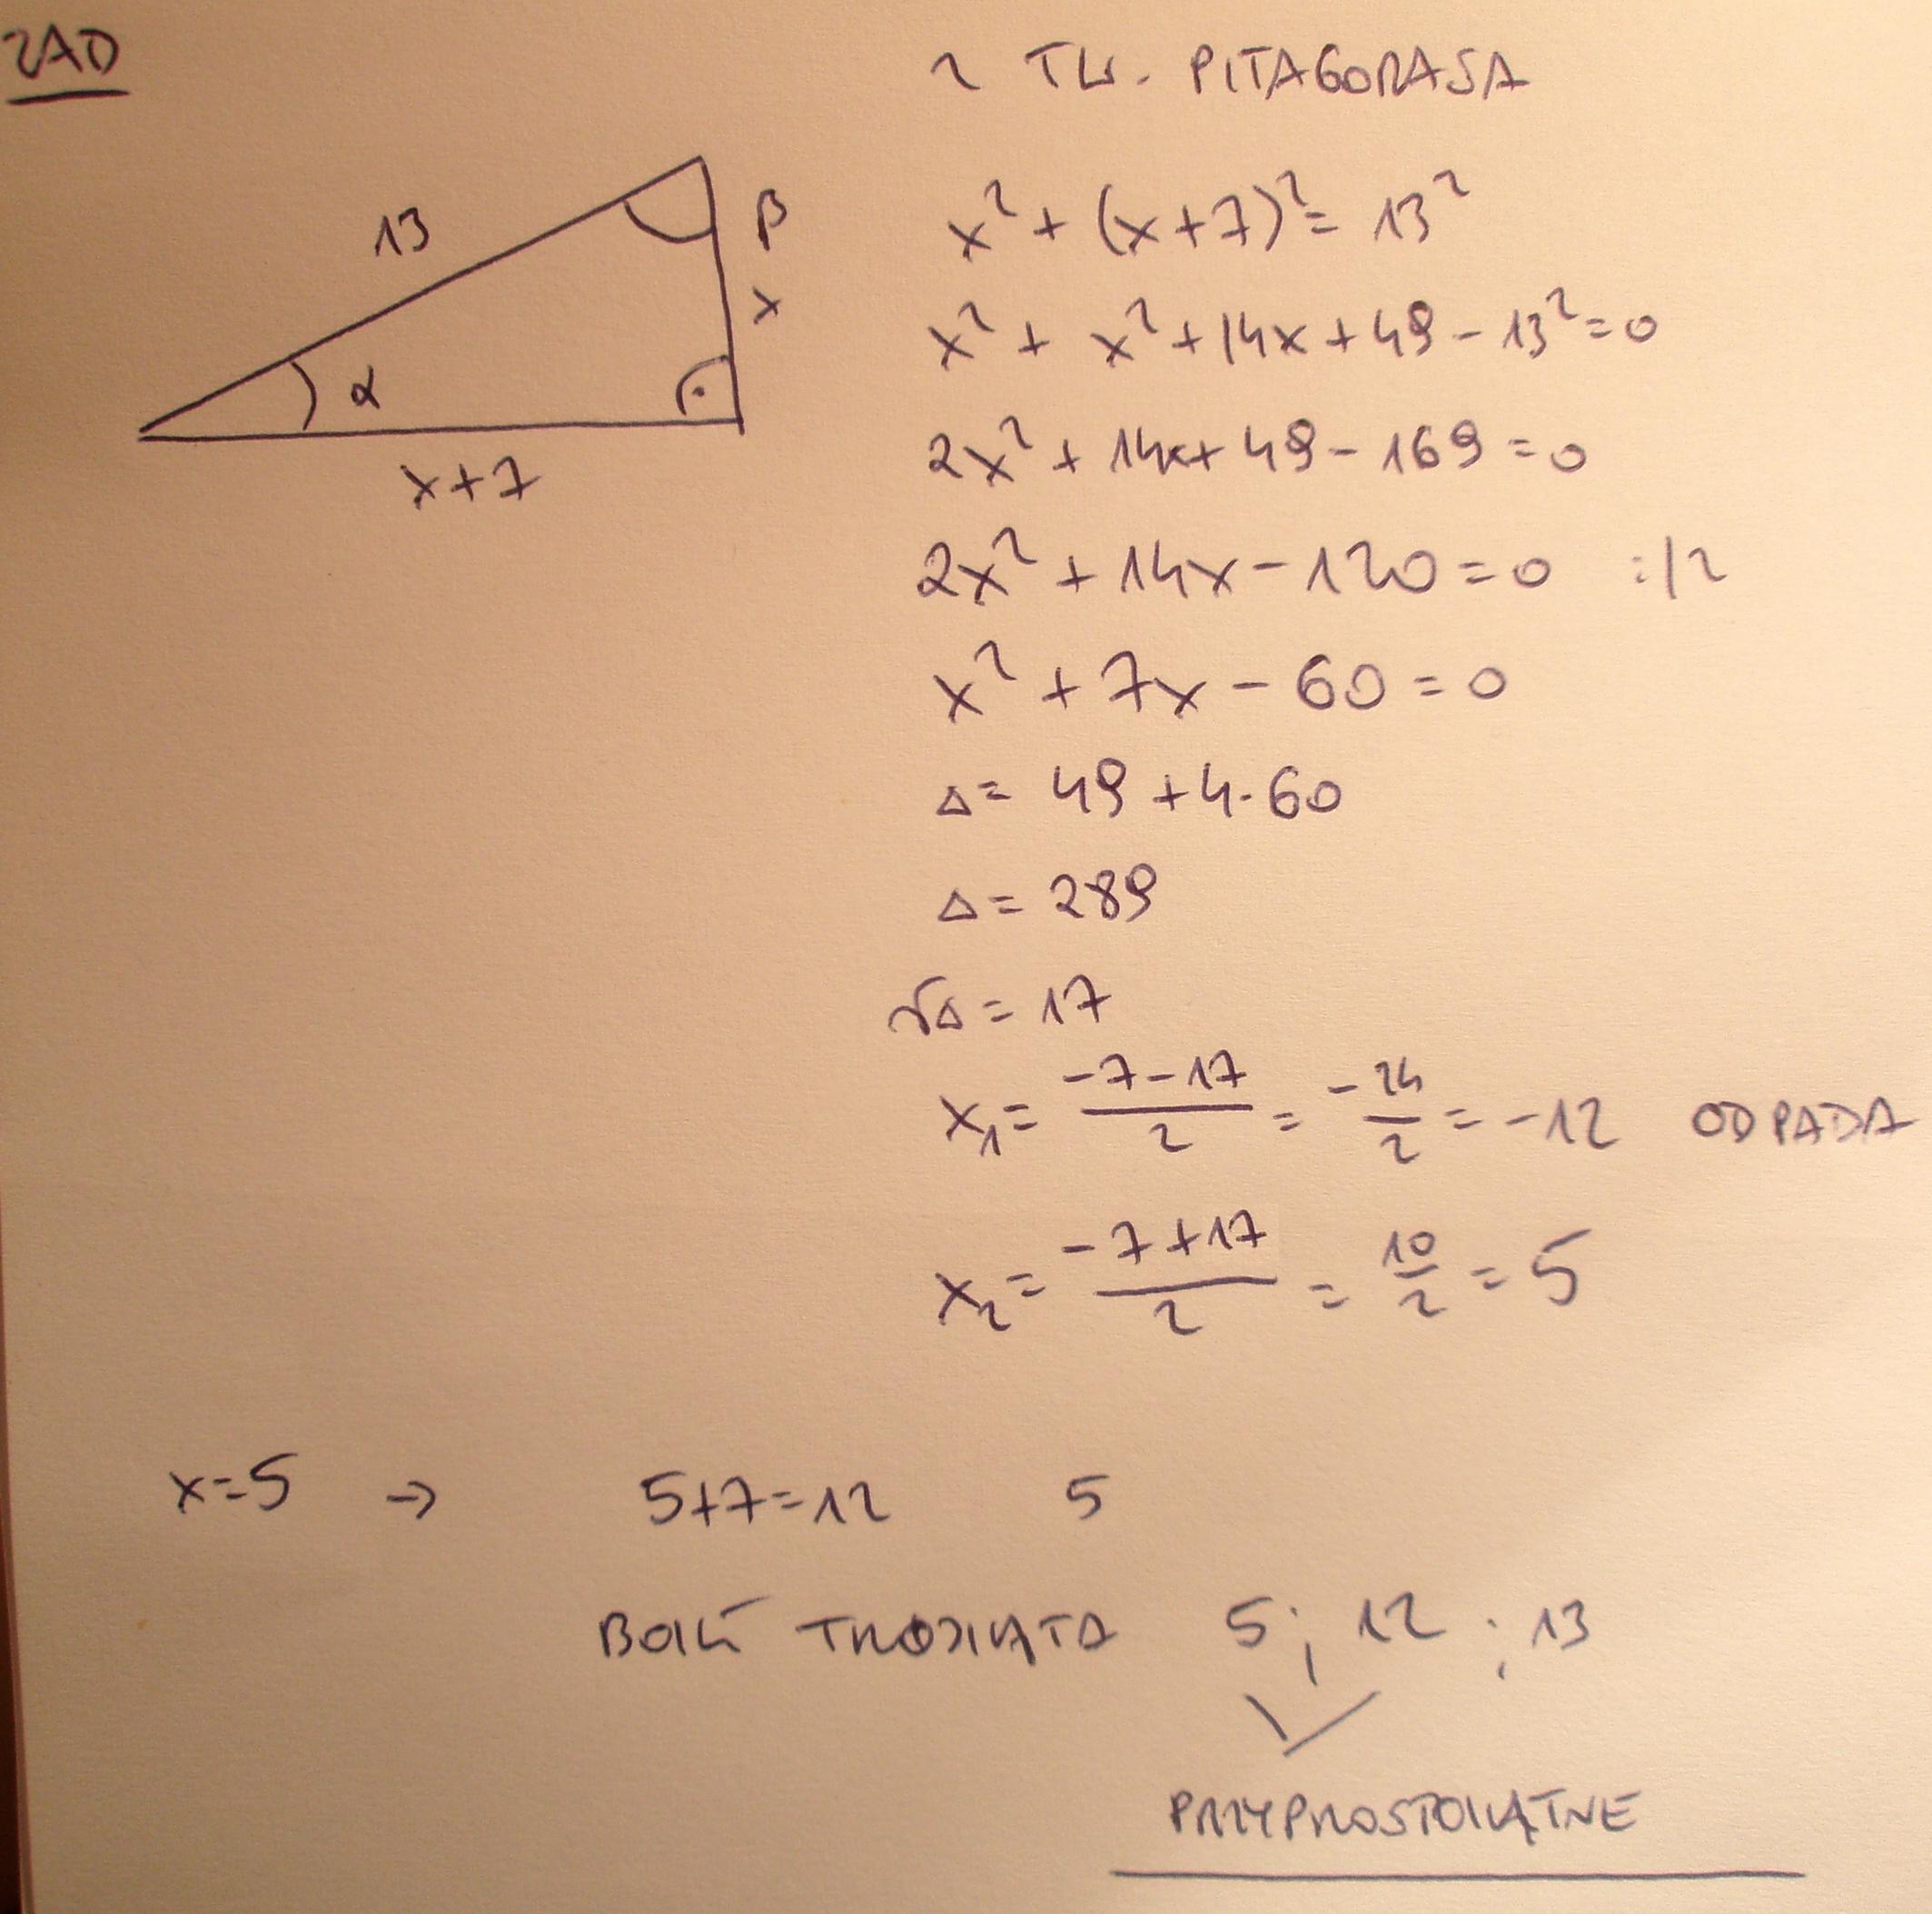 ZAD
Z TW. PITAGORASA
13
β
x
α
x+7
x² + (x+7)² = 13²
x² + x² + 14x + 49 - 13² = 0
2x² + 14x + 49 - 169 = 0
2x² + 14x - 120 = 0 :|2
x² + 7x - 60 = 0
Δ = 49 + 4·60
Δ = 289
√Δ = 17
x₁ = (-7-17)/2 = -24/2 = -12 ODPADA
x₂ = (-7+17)/2 = 10/2 = 5
x=5 → 5+7=12 5
BOKI TRÓJKĄTA 5; 12; 13
PRZYPROSTOKĄTNE